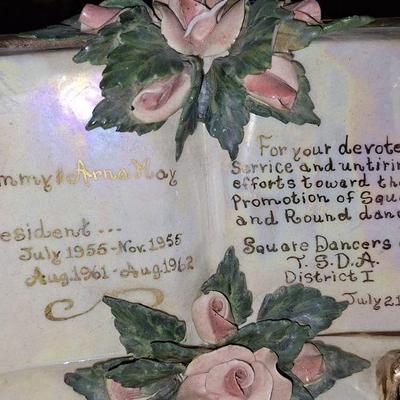 mmy & Arna May
esident...
July 1955-Nov. 1955
Aug. 1961-Aug. 1962
For your devote
Service and untirin
efforts toward the
Promotion of Squa
and Round danc
Square Dancers
T.S.D.A.
District I
July 21